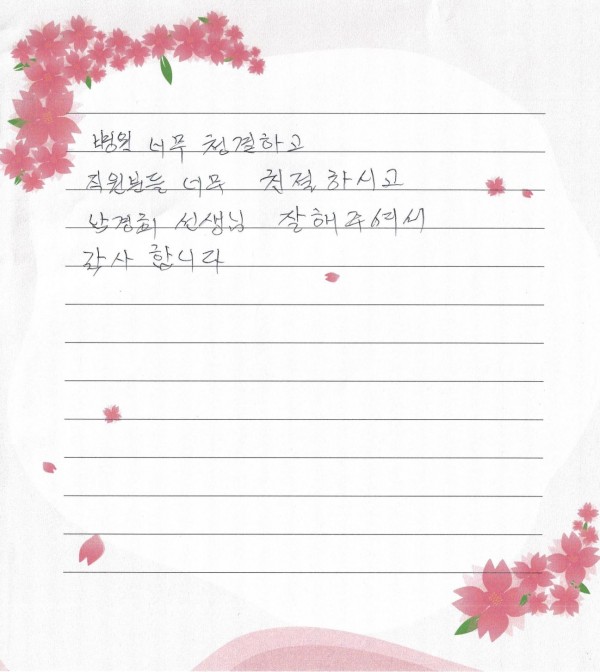 병원 너무 청결하고
직원분들 너무 친절하시고
박경희 선생님 잘해주여서
감사 합니다